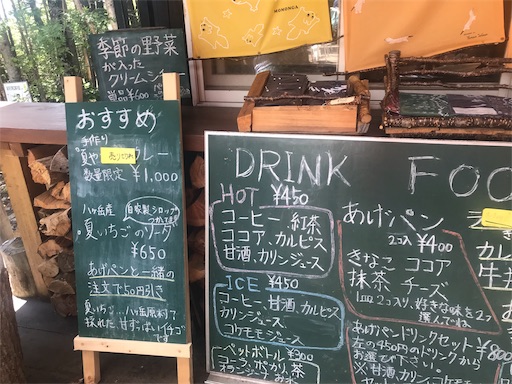 MOMONGA
季節の野菜
が入った
クリームシチュー
おすすめ
手作り
夏や 売り切れ カレー
数量限定 ¥1,000
八ヶ岳産
自家製シロップ
夏いちごのソーダ
¥650
あげパンと一緒の
注文で50円引き
夏いちご…八ヶ岳原村で
採れた、甘ずっぱいイチゴ
です
DRINK
HOT ¥450
コーヒー、紅茶
ココア、カルピス
甘酒、カリンジュース
ICE ¥450
コーヒー、甘酒、カルピス
カリンジュース
コケモモジュース
ペットボトル ¥300
コーラ、ポカリ、茶
オランジーナ、お水
FOO
あげパン
2コ入 ¥400
きなこ ココア
抹茶 チーズ
1皿2コ入り、好きな味を2つ
選んでね
あげパンドリンクセット ¥800
左の450円のドリンクから
お選び下さい。
※甘酒、カリンジュース